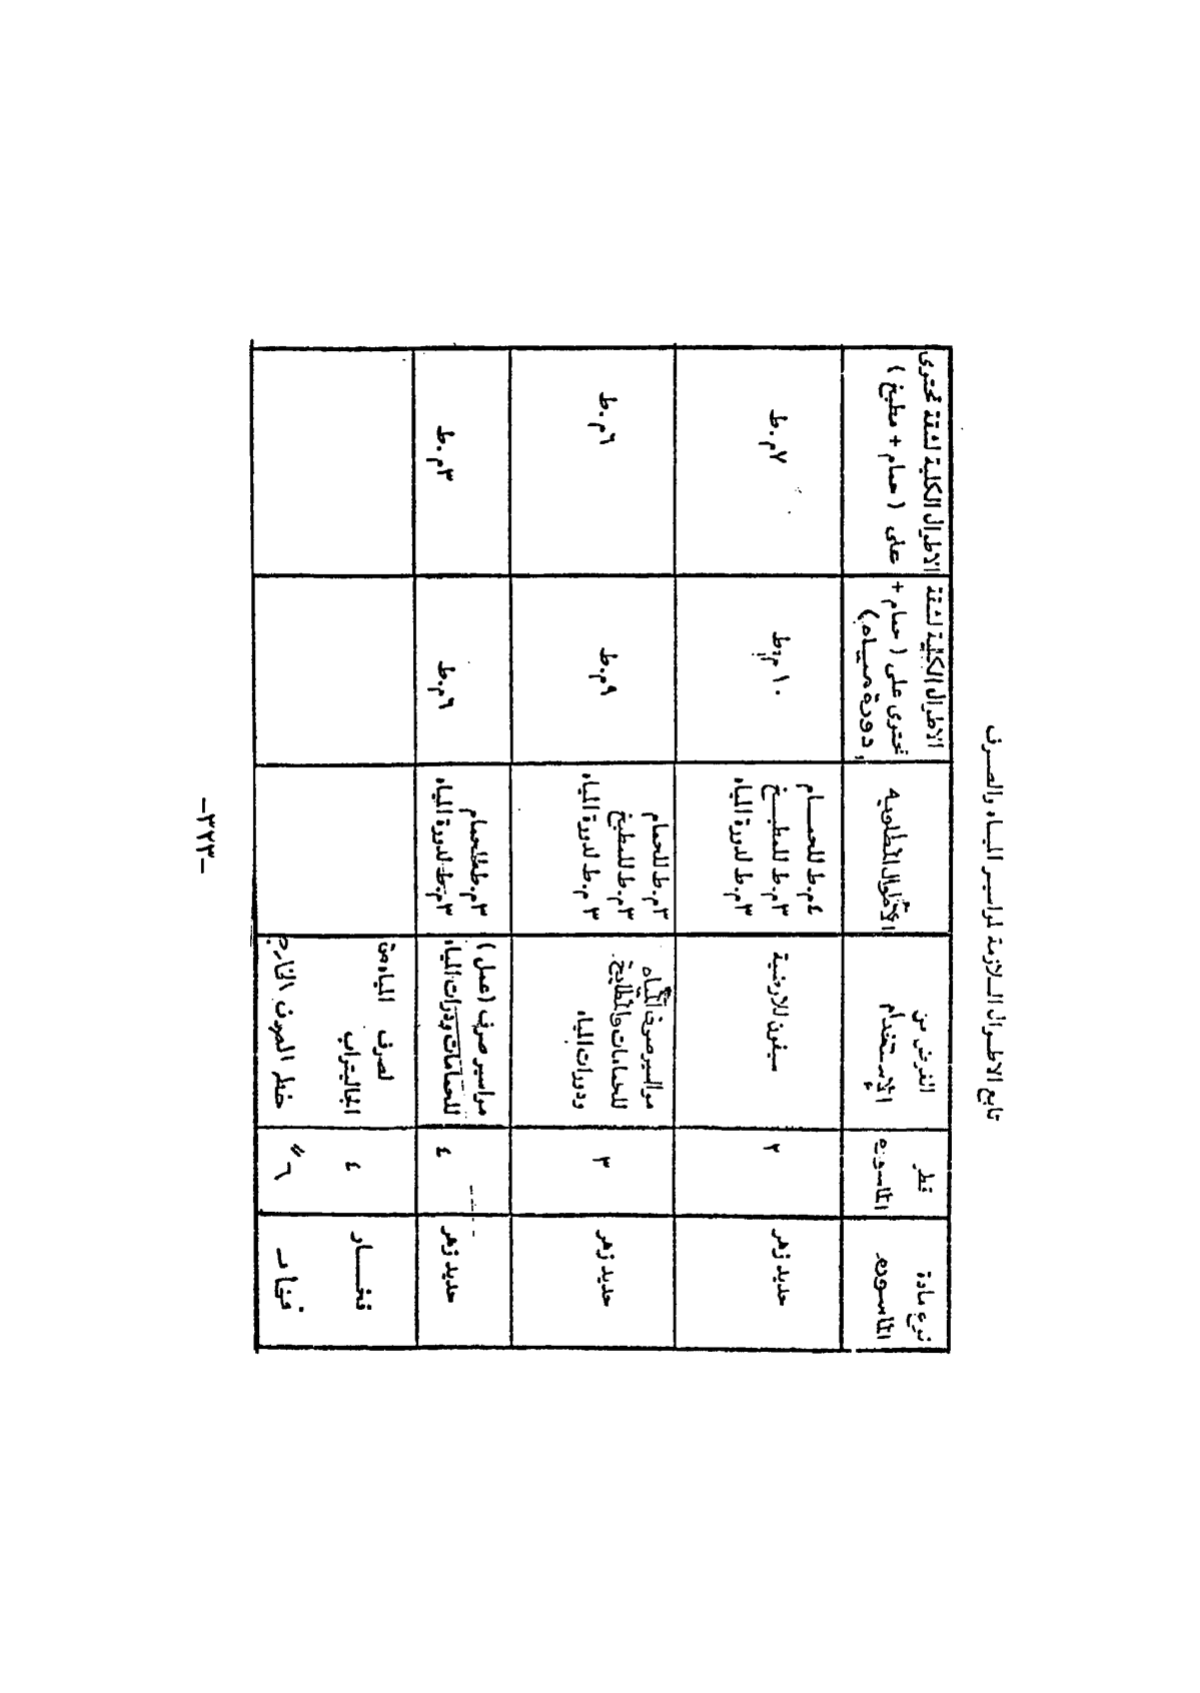 تابع الاطوال اللازمة لمواسير المياه والصرف
نوع مادة
الماسوره
قطر
الماسوره
الغرض من
الإستخدام
الأطوال المطلوبه
الاطوال الكلية لشقة
تحتوى على (حمام +
دورة مياه)
الاطوال الكلية لشقة تحتوى
على (حمام + مطبخ)
حديد زهر
٢
سيفون للارضية
٤م.ط للحمام
٣م.ط للمطبخ
٣م.ط لدورة المياه
١٠م.ط
٧م.ط
حديد زهر
٣
مواسير صرف المياه
للحمامات والمطابخ
ودورات المياه
٣م.ط للحمام
٣م.ط للمطبخ
٣م.ط لدورة المياه
٩م.ط
٦م.ط
حديد زهر
٤
مواسير صرف (عمل)
للحمامات ودورات المياه
٣م.ط للحمام
٣م.ط لدورة المياه
٦م.ط
٣م.ط
فخار
٤
لصرف المياه من
الجاليتراب
فخار
٦"
خط الصرف الخارجى
-٣٢٣-